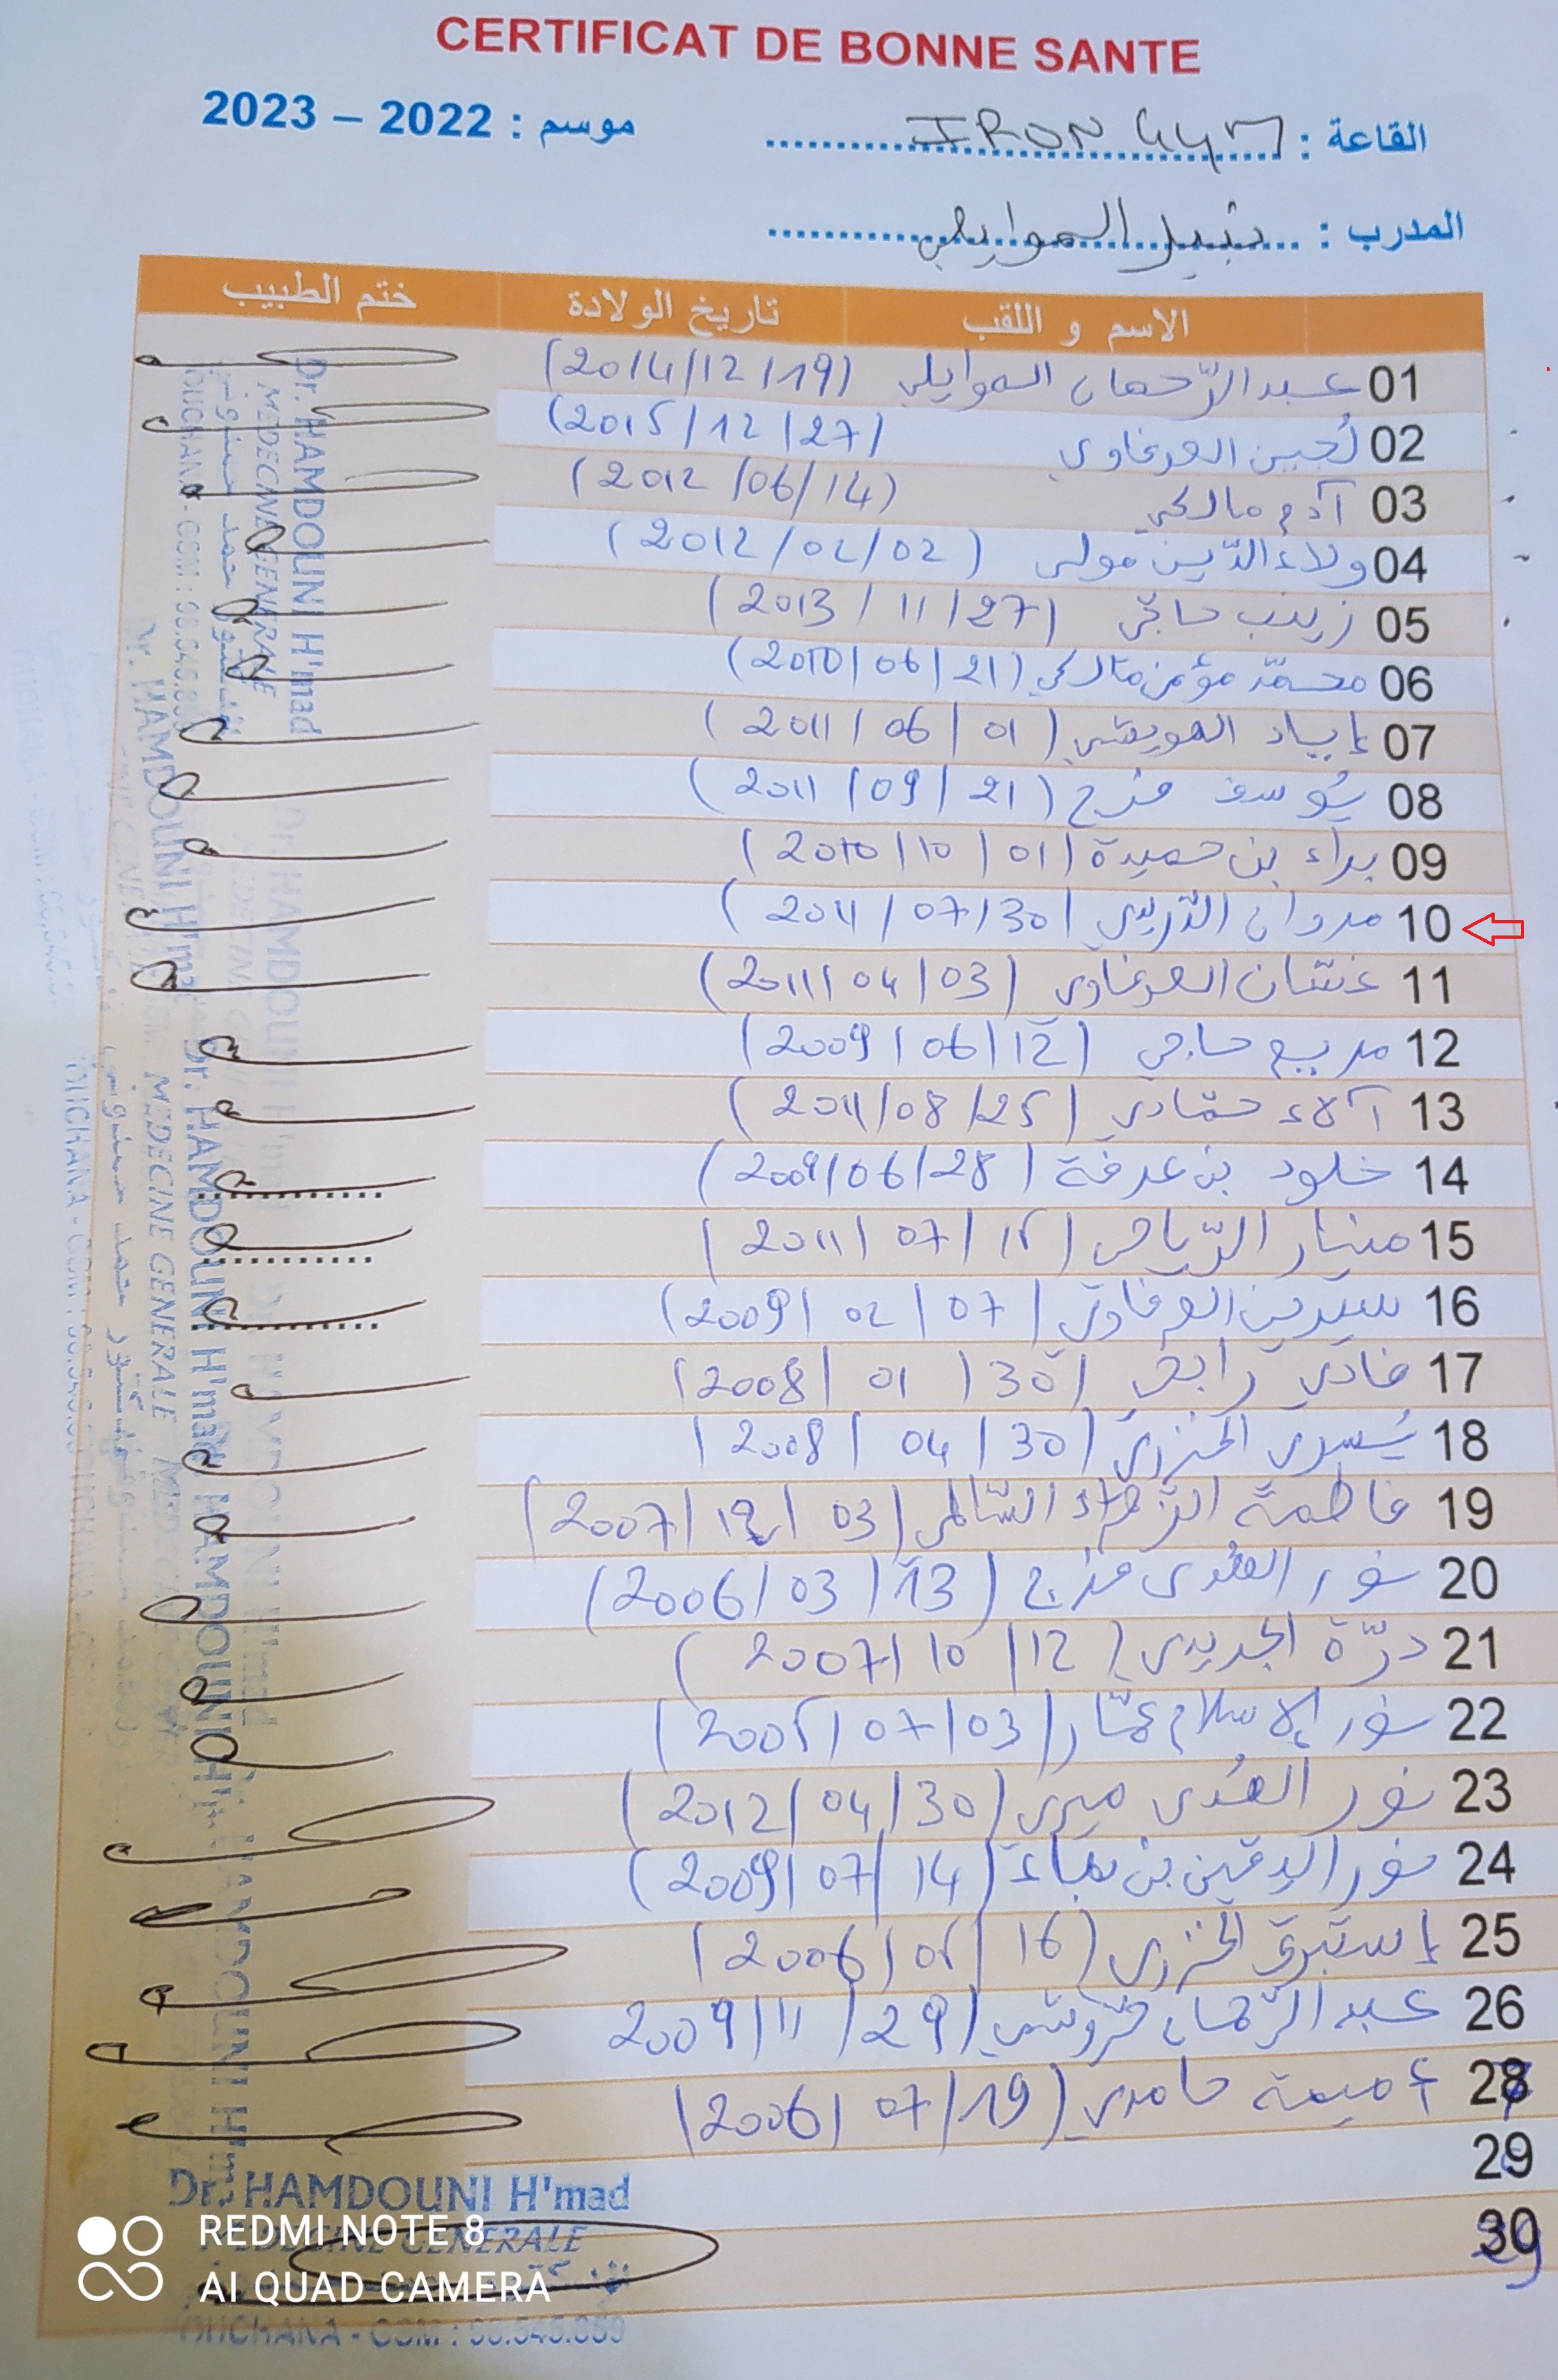 CERTIFICAT DE BONNE SANTE
القاعة : IRON GYM
موسم : 2022 – 2023
المدرب : نبيل السوايلي
الاسم و اللقب تاريخ الولادة ختم الطبيب
01 عبد الرّحمان السوايلي (2014/12/19)
02 لُجين العرفاوي (2015/12/27)
03 آدم مالكي (2012/06/14)
04 ولاء الدّين مولى (2012/02/02)
05 زينب حاجّي (2013/11/27)
06 محمّد مؤمن مالكي (2010/06/21)
07 إياد الهويشي (2011/06/01)
08 يُوسف فرج (2011/09/21)
09 براء بن حميدة (2010/10/01)
10 مروان الدّريدي (2011/07/30)
11 غسّان العرفاوي (2011/04/03)
12 مريم حاجي (2009/06/12)
13 آلاء حمّادي (2011/08/25)
14 خلود بن عرفة (2009/06/28)
15 منار الرّياحي (2011/07/15)
16 سيرين العرفاوي (2009/02/07)
17 فادي رابحي (2008/01/30)
18 يُسرى الخنزري (2008/04/30)
19 فاطمة الزّهراء السّالمي (2007/12/03)
20 نور الهُدى فرج (2006/03/13)
21 درّة الجريدي (2007/10/12)
22 نور الإسلام عمّار (2005/07/03)
23 نور الهُدى ميري (2012/04/30)
24 نور اليقين بن (2009/07/14)
25 إستبرق الخنزري (2006/05/16)
26 عبد الرّحمان (2009/11/29
28 أميمة حامدي (2006/07/19)
29
30
Dr. HAMDOUNI H'mad
MEDECINE GENERALE
REDMI NOTE 8
AI QUAD CAMERA